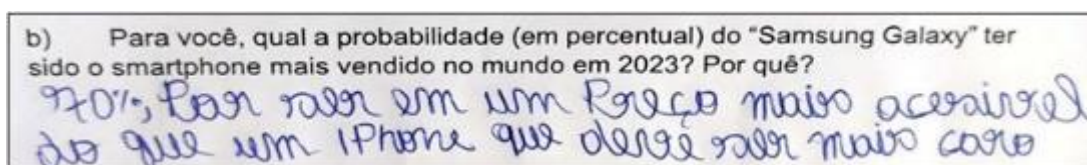 b) Para você, qual a probabilidade (em percentual) do “Samsung Galaxy” ter
sido o smartphone mais vendido no mundo em 2023? Por quê?
70%, Por ser em um Preço mais acessivel
do que um IPhone que deve ser mais caro